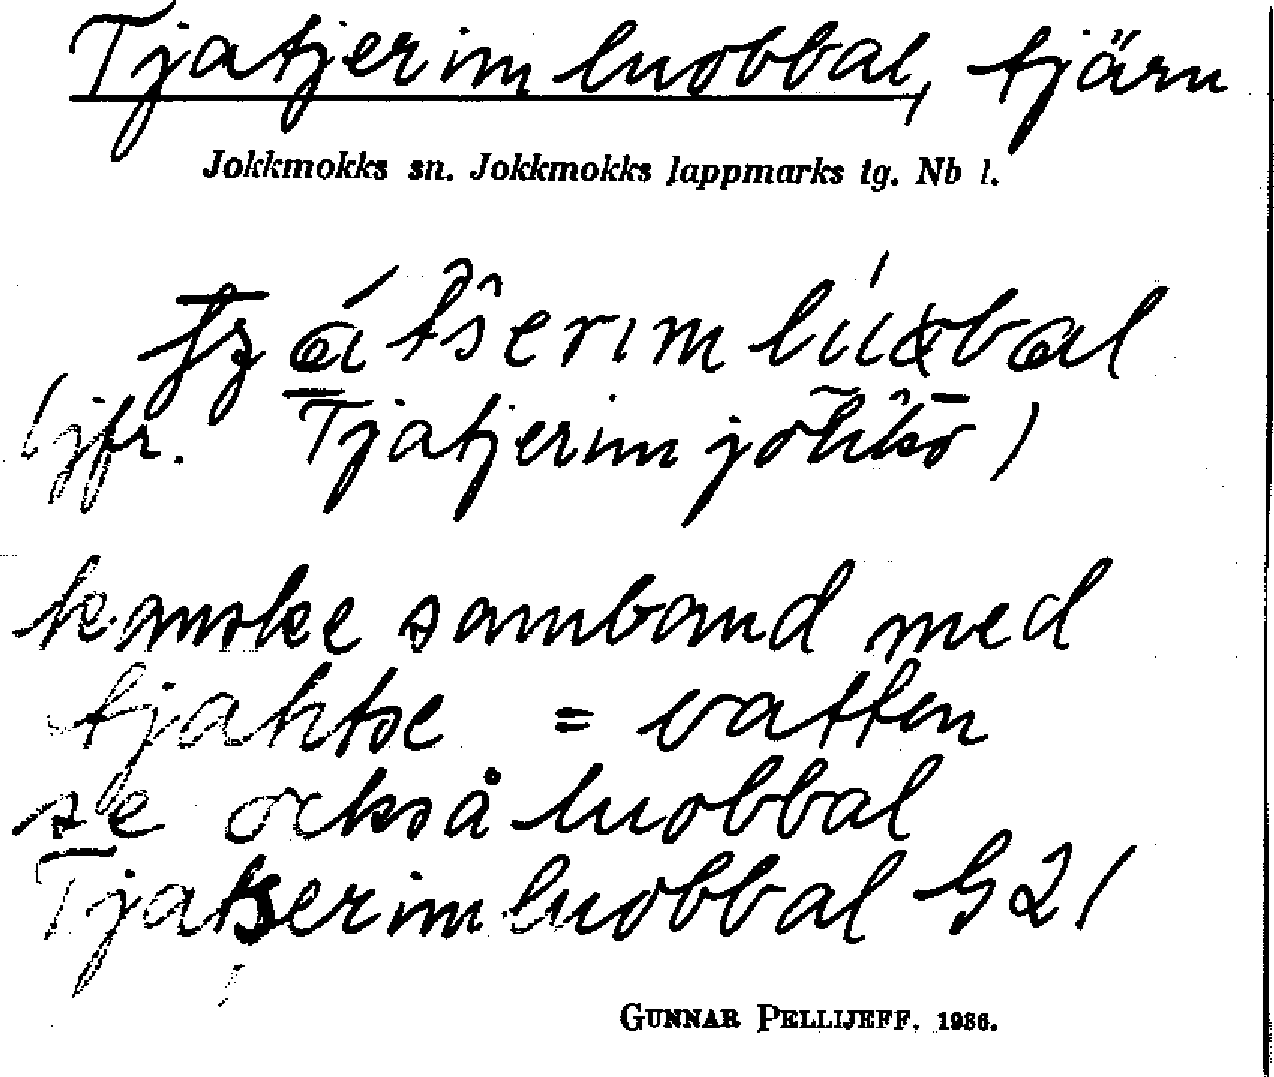 Tjatjerimluobbal, tjärn
Jokkmokks sn. Jokkmokks lappmarks tg. Nb l.
(jfr. Tjatjerimjåhkå)
kanske samband med
tjahtse = vatten
se också luobbal
Tjatserimluobbal G21
GUNNAR PELLIJEFF, 1936.